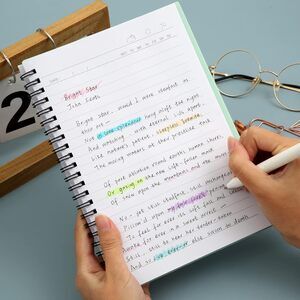 2
Bright Star
John Keats
Bright star, would I were steadfast as
thou art —
Not in lone splendour hung aloft the night,
And watching, with eternal lids apart,
Like nature's patient, sleepless Eremite,
The moving waters at their priestlike task
Of pure ablution round earth's human shores,
Or gazing on the new soft-fallen mask
Of snow upon the mountains and the moors
No - yet still steadfast, still
Pillow'd upon my fair love's
To feel for ever its soft fall and
Awake for ever in a sweet unrest,
Still, still to hear her tender-taken
And so live ever or else swoon to death